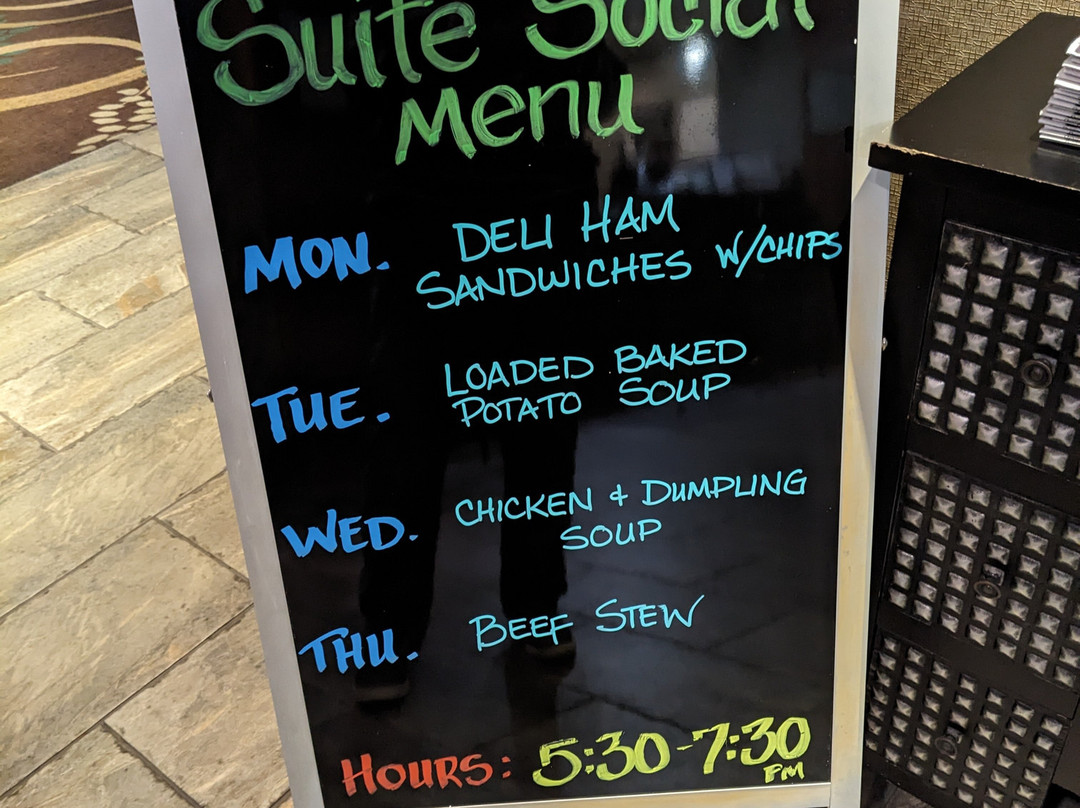 Suite Social
Menu
MON. DELI HAM
SANDWICHES W/CHIPS
TUE. LOADED BAKED
POTATO SOUP
WED. CHICKEN & DUMPLING
SOUP
THU. BEEF STEW
HOURS: 5:30-7:30
PM